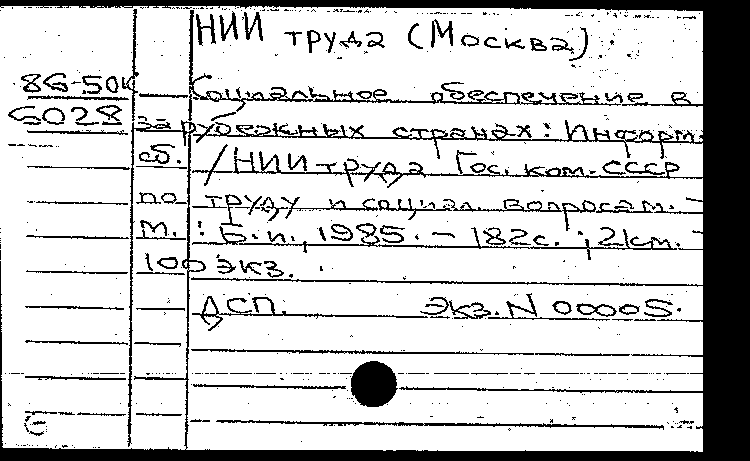 НИИ труда (Москва)
86-50к Социальное обеспечение в
6028 зарубежных странах: Информ.
сб. / НИИ труда Гос. ком. СССР
по труду и социал. вопросам. -
М. : Б.и., 1985. - 182с. ; 21см. -
100 экз.
ДСП. Экз. N 00005.